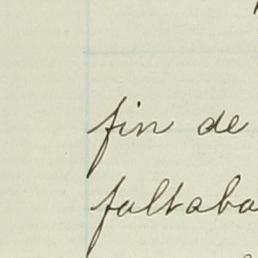 fin de
faltaba